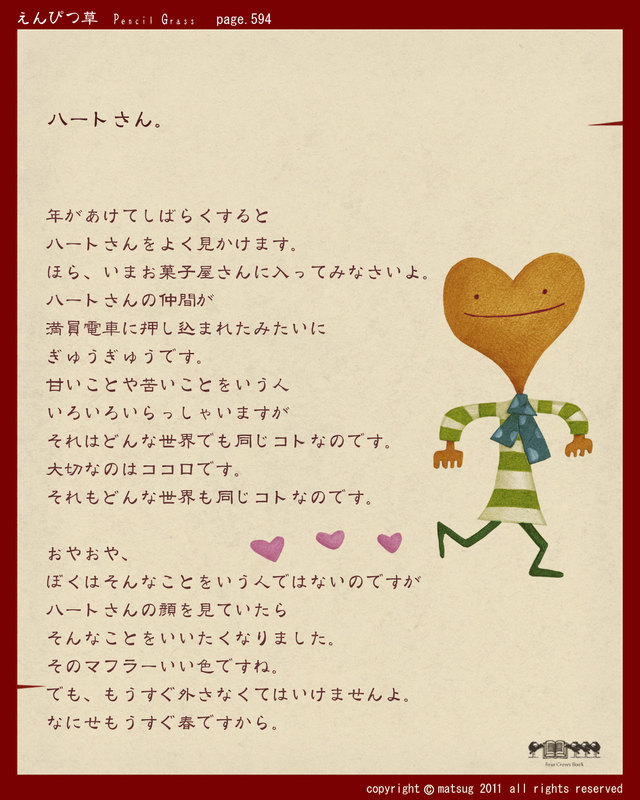 えんぴつ草 Pencil Grass page.594
ハートさん。
年があけてしばらくすると
ハートさんをよく見かけます。
ほら、いまお菓子屋さんに入ってみなさいよ。
ハートさんの仲間が
満員電車に押し込まれたみたいに
ぎゅうぎゅうです。
甘いことや苦いことをいう人
いろいろいらっしゃいますが
それはどんな世界でも同じコトなのです。
大切なのはココロです。
それもどんな世界も同じコトなのです。
おやおや、
ぼくはそんなことをいう人ではないのですが
ハートさんの顔を見ていたら
そんなことをいいたくなりました。
そのマフラーいい色ですね。
でも、もうすぐ外さなくてはいけませんよ。
なにせもうすぐ春ですから。
Four Crows Book
copyright © matsug 2011 all rights reserved